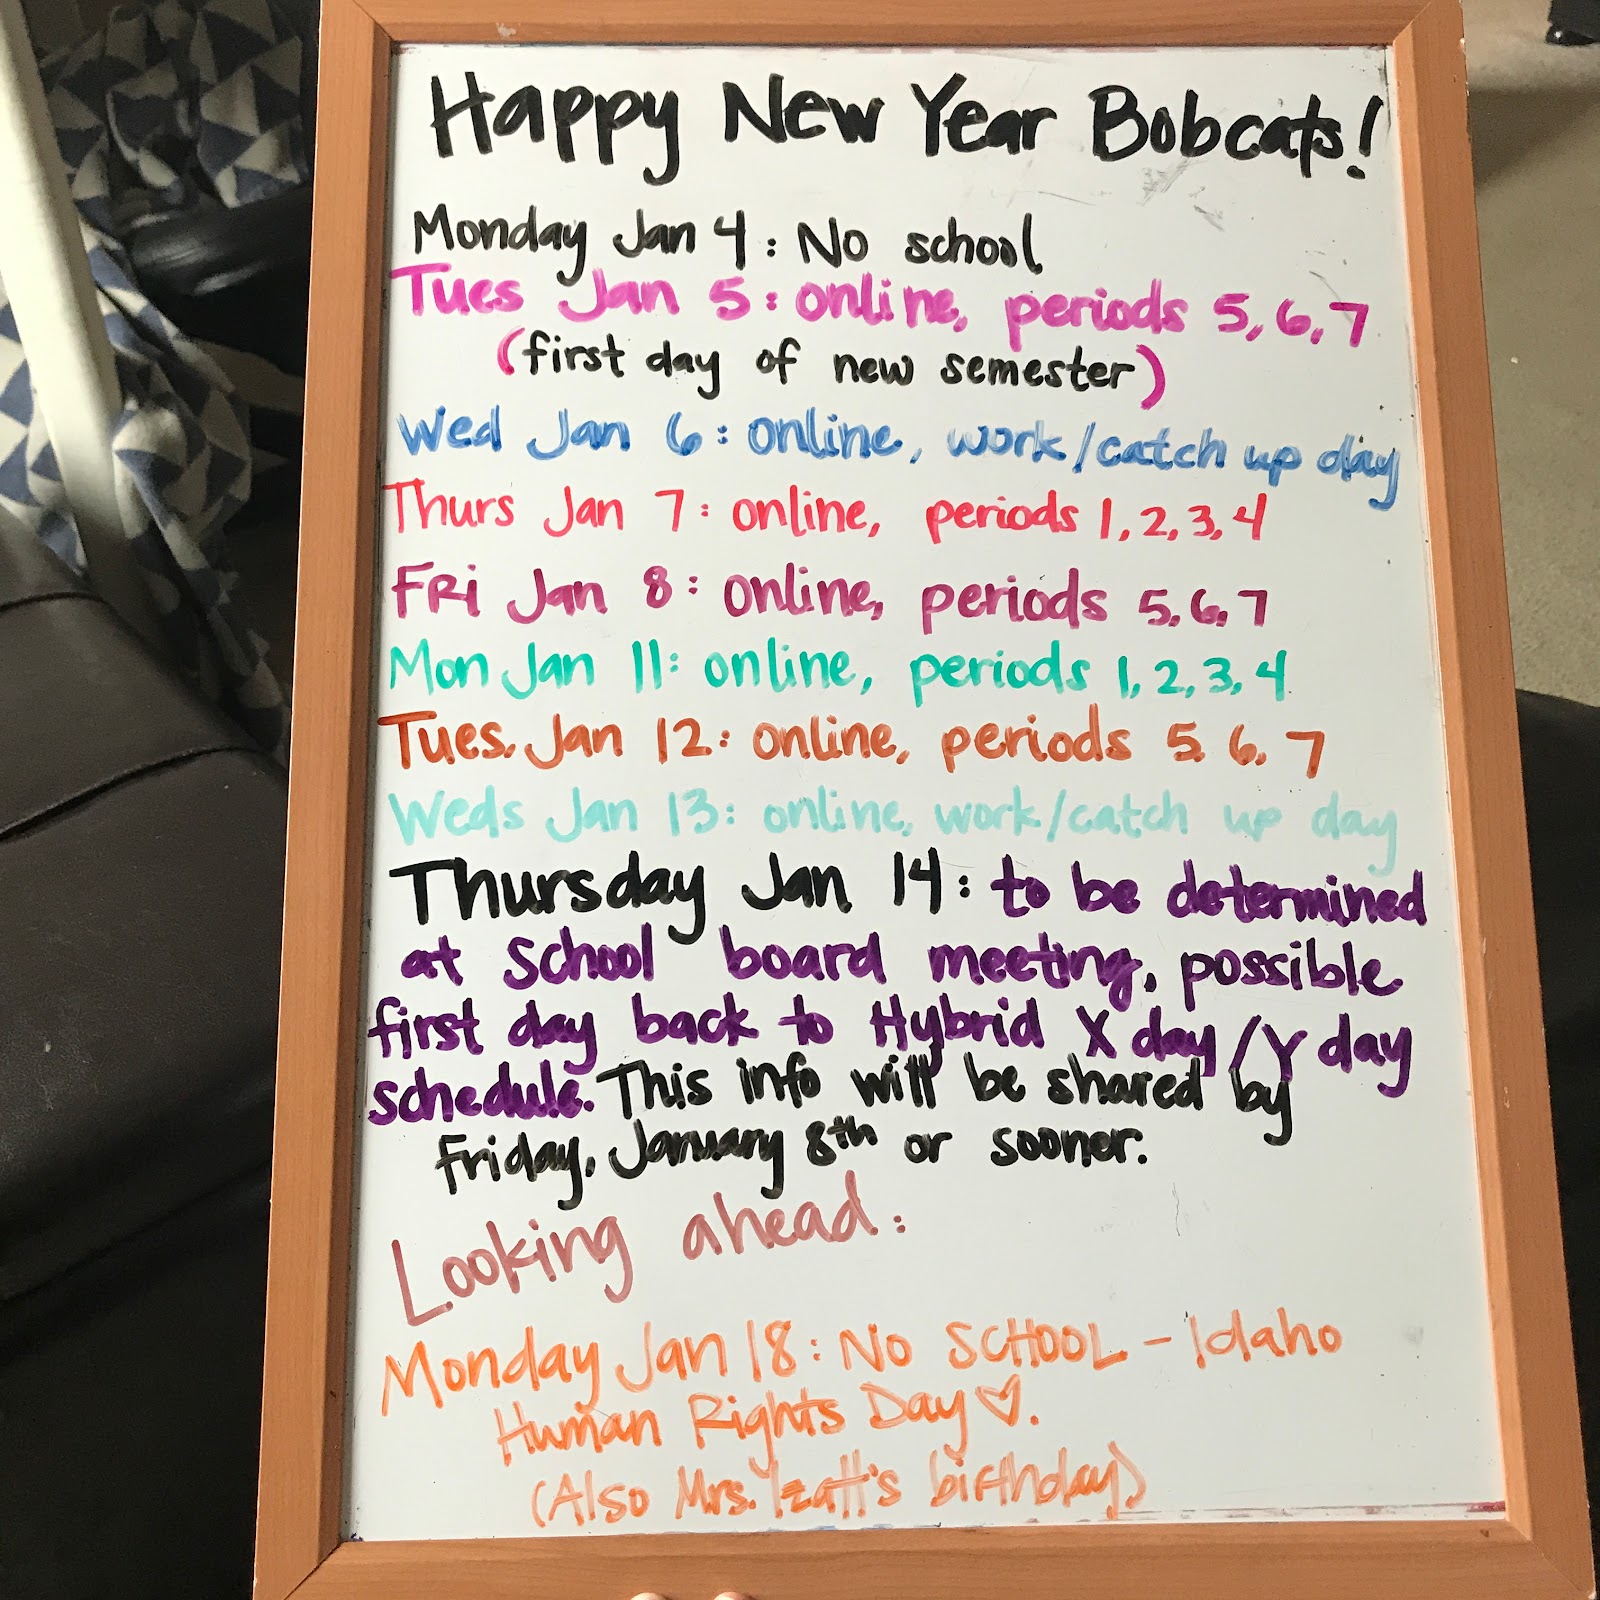 Happy New Year Bobcats!
Monday Jan 4: No school
Tues Jan 5: online, periods 5, 6, 7
(first day of new semester)
Wed Jan 6: online, work/catch up day
Thurs Jan 7: online, periods 1, 2, 3, 4
FRi Jan 8: online, periods 5, 6, 7
Mon Jan 11: online, periods 1, 2, 3, 4
Tues. Jan 12: online, periods 5. 6. 7
Weds Jan 13: online, work/catch up day
Thursday Jan 14: to be determined
at School board meeting, possible
first day back to Hybrid X day/Y day
schedule. This info will be shared by
Friday, January 8th or sooner.
Looking ahead:
Monday Jan 18: No SCHOOL - Idaho
Human Rights Day ♡.
(Also Mrs. Izatt's birthday)